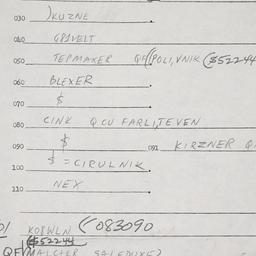 030 )KUZNE
040 GPIVELT
050 TEPMAKER QF((POLI,VNIK (852244
060 BLEXER
070 $
080 CINK QCU FARLI,TEVEN
090 $ 091 KIRZNER Q
100 $ = CIRULNIK
110 NEX
01 KOBWLN (083090
(852244
QF(MAICHER